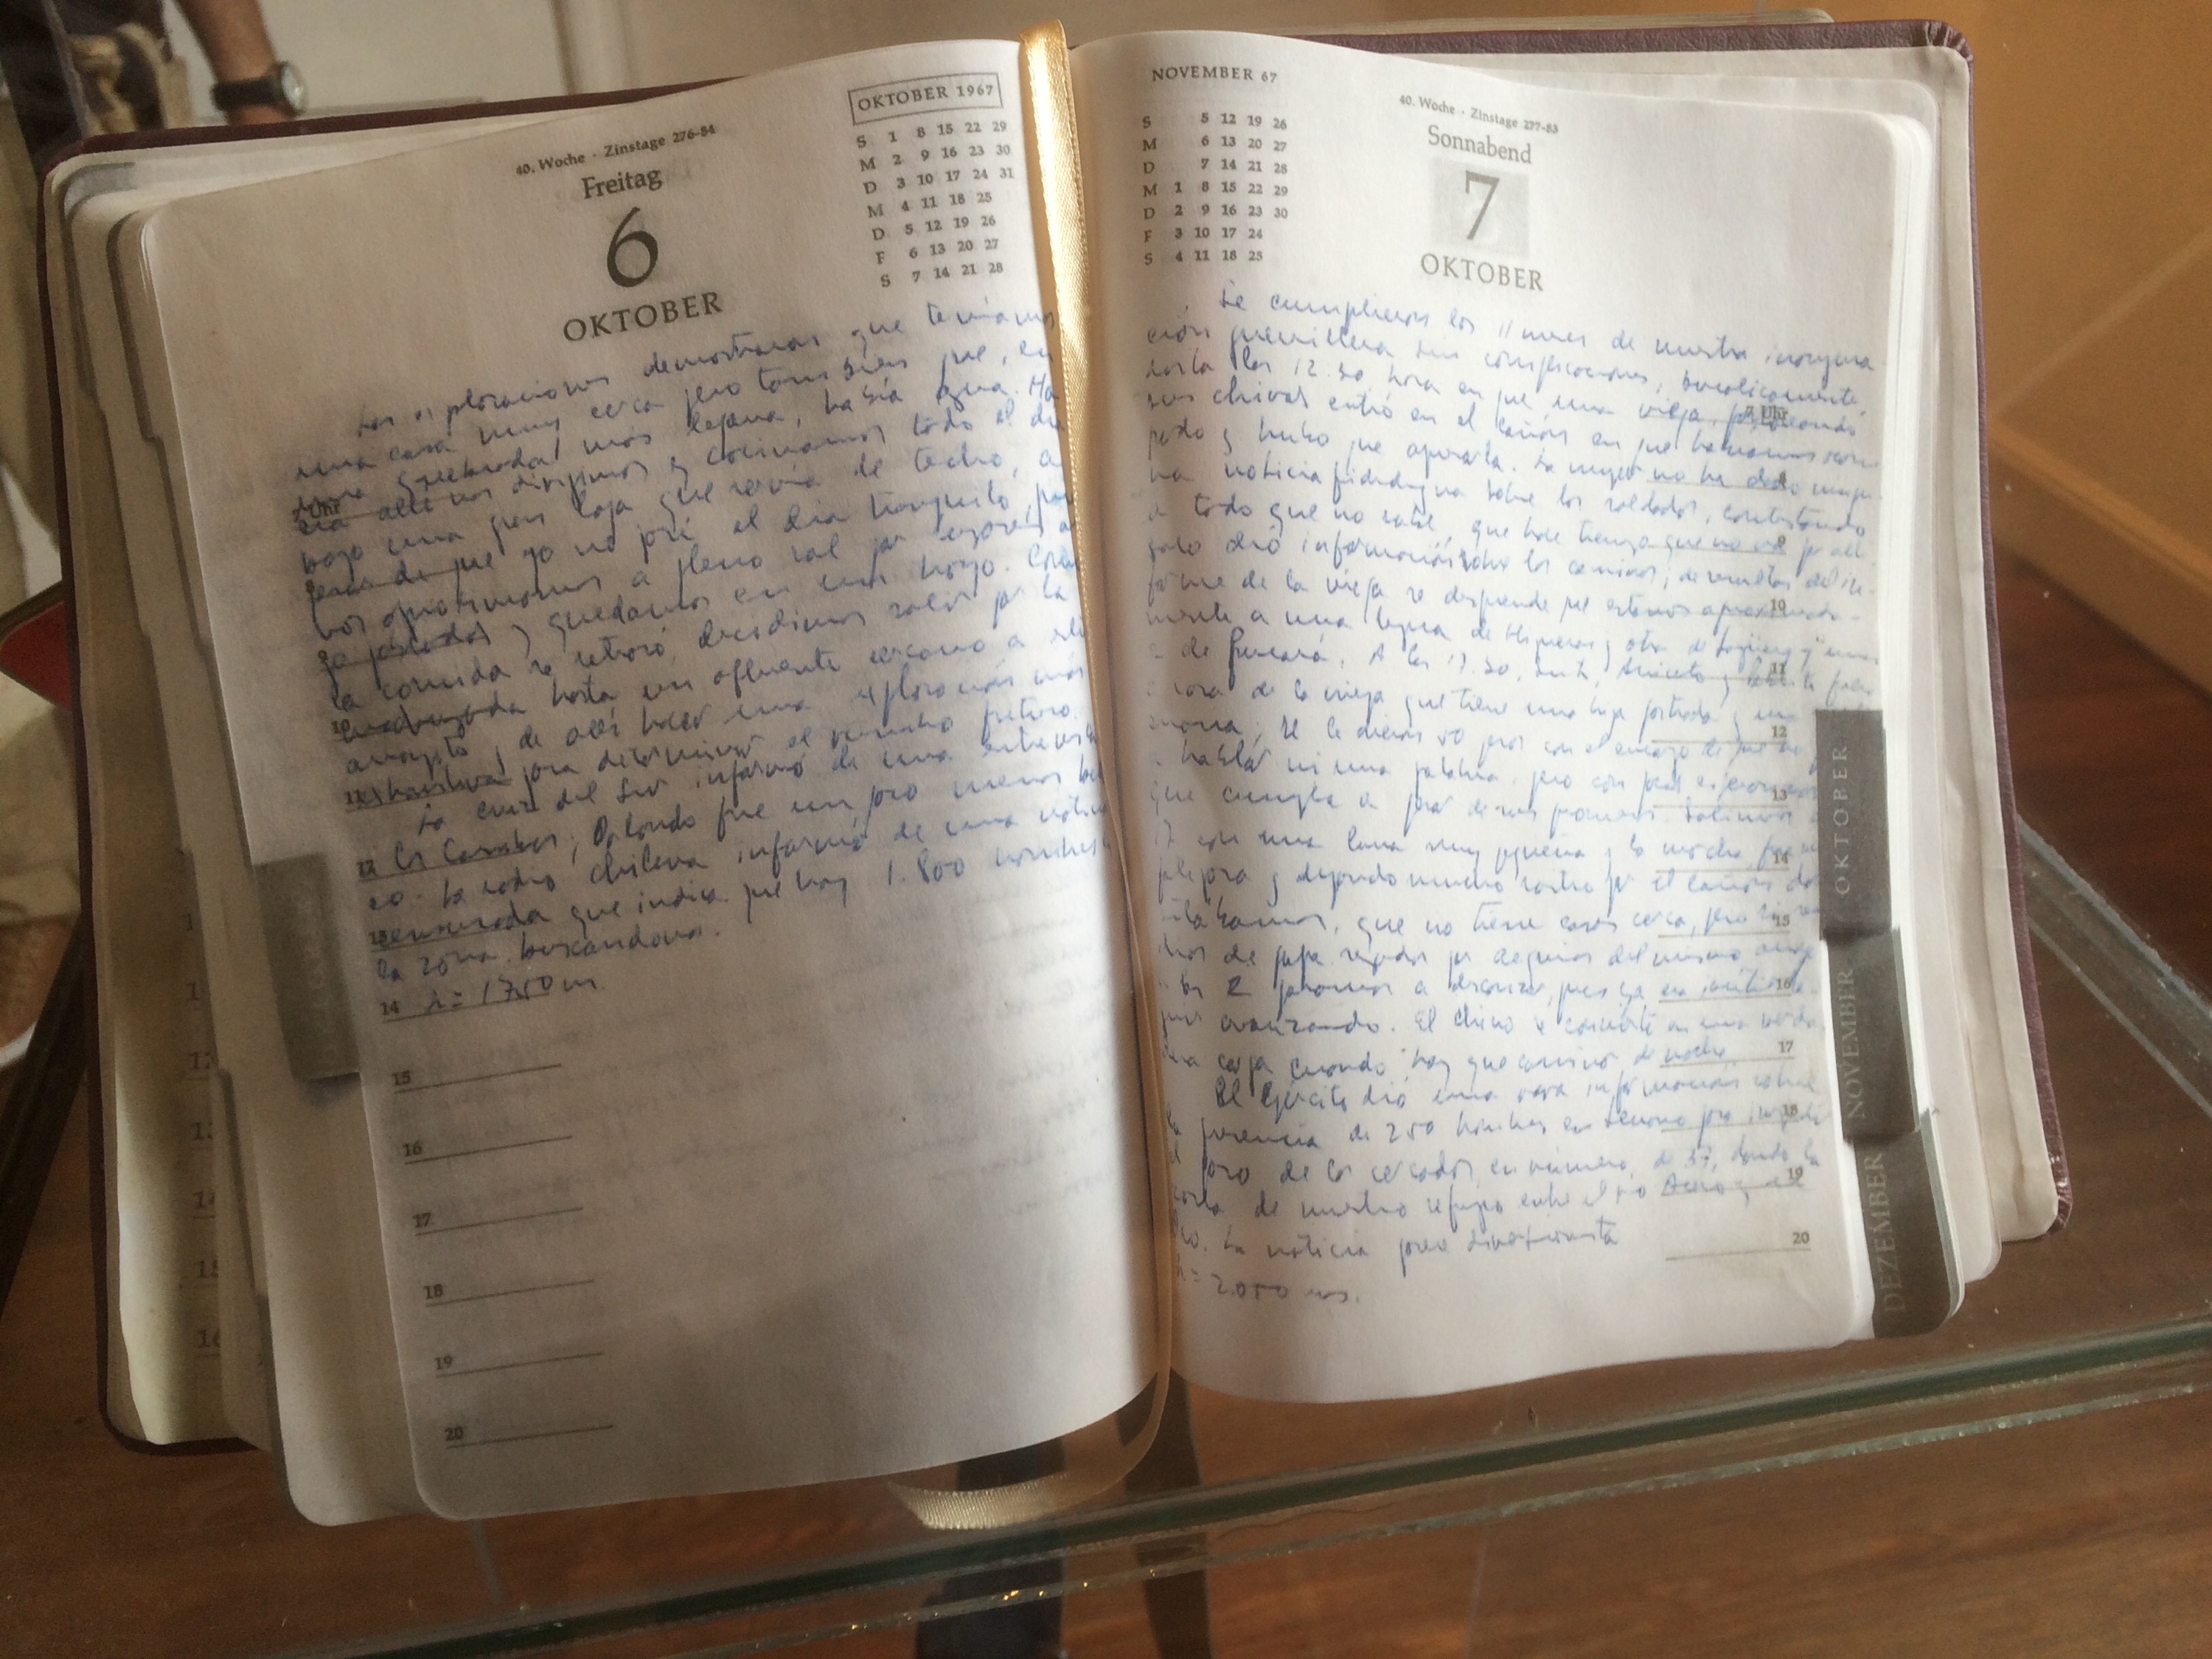 OKTOBER 1967
S 1 8 15 22 29
M 2 9 16 23 30
D 3 10 17 24 31
M 4 11 18 25
D 5 12 19 26
F 6 13 20 27
S 7 14 21 28
40. Woche · Zinstage 276-84
Freitag
6
OKTOBER
Las exploraciones demostraron que teníamos
una casa muy cerca pero también que, en
una quebrada más lejana, había agua. Ha
cia allí nos dirigimos y cocinamos todo el día
bajo una gran laja que servía de techo, a
pesar de que yo no pasé el día tranquilo, pues
nos aproximamos a pleno sol por lugares al
go poblados y quedamos en un hoyo. Como
la comida se retrasó, decidimos salir por la
madrugada hasta un afluente cercano a este
arroyito y de allí hacer una exploración más
exhaustiva para determinar el rumbo futuro.
La cruz del Sur informó de una entrevista
a los Cambas; Orlando fue un poco menos
co. La radio chilena informó de una noticia
censurada que indica que hay 1.800 hombres
la zona buscándonos.
h= 1750 m
7 Uhr
8
9
10
11
12
13
14
15
16
17
18
19
20
NOVEMBER 67
S 5 12 19 26
M 6 13 20 27
D 7 14 21 28
M 1 8 15 22 29
D 2 9 16 23 30
F 3 10 17 24
S 4 11 18 25
40. Woche · Zinstage 277-83
Sonnabend
7
OKTOBER
Se cumplieron los 11 meses de nuestra inaugura
ción guerrillera sin complicaciones, bucolicamente,
hasta las 12.30, hora en que una vieja, pastoreando
sus chivas entró en el cañón en que habíamos acam
pado y hubo que apresarla. La mujer no ha dado ningu
na noticia fidedigna sobre los soldados, contestando
a todo que no sabe, que hace tiempo que no va por allí
solo dió información sobre los caminos; de resultas del in
forme de la vieja se desprende que estamos aproximada
mente a una legua de Higueras y otra de Jagüey y unas
2 de Pucará. A las 17.30, Inti, Aniceto y Pablito fueron
a casa de la vieja que tiene una hija postrada y una
enana; se le dieron 50 pesos con el encargo de que no
hablar ni una palabra, pero con pocas esperanzas
que cumpla a pesar de sus promesas. Salimos
17 con una luna muy pequeña y la marcha fue
y dejando mucho rastro por el cañón do
estábamos, que no tiene casas cerca, pero
de papa regados por acequias del mismo
2 paramos a descansar, pues ya era inútil
avanzando. El Chino se convierte en una verda
dera carga cuando hay que caminar de noche.
El Ejército dió una rara información sobre
la presencia de 250 hombres en Serrano para impedir
el paso de los cercados, en número de 37, dando la
zona de nuestro refugio entre el río Acero y el
Oro. La noticia parece diversionista
h= 2.000 ms.
7 Uhr
8
9
10
11
12
13
14
15
16
17
18
19
20
OKTOBER
NOVEMBER
DEZEMBER